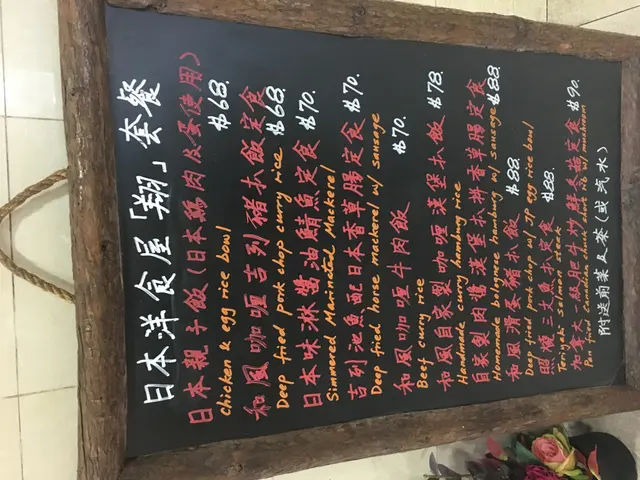 日本洋食屋「翔」套餐
日本親子飯(日本鷄肉及蛋使用)
$68.
chicken & egg rice bowl
和風咖喱吉列豬扒飯定食 $68.
Deep fried pork chop curry rice
日本味淋醬油鯖魚定食 $70.
Simmered Marinated Mackerel
吉列池魚配日本香草腸定食 $70.
Deep fried horse mackerel w/ sausage
和風咖喱牛肉飯 $70.
Beef curry rice
和風自家製咖喱漢堡扒飯 $78.
Handmade curry hamburg rice
自家製肉醬漢堡扒拼香草腸定食 $88.
Homemade bolognese hamburg w/ sausage
和風滑蛋豬扒飯 $88.
Deep fried pork chop w/ JP egg rice bowl
照燒三文魚扒定食 $88.
Teriyaki salmon steak
加拿大牛肩胛肉炒鮮菇定食 $90.
Pan fried Canadian chuck short rib w/ mushroom
附送前菜及茶(或汽水)